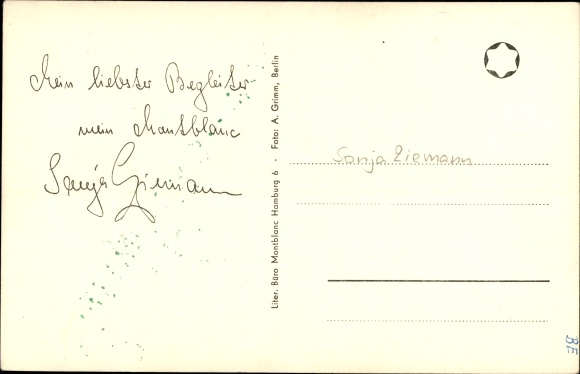 Mein liebster Begleiter
mein Montblanc
Sonja Ziemann
Liter. Büro Montblanc Hamburg 6 · Foto: A. Grimm, Berlin
Sonja Ziemann
BF